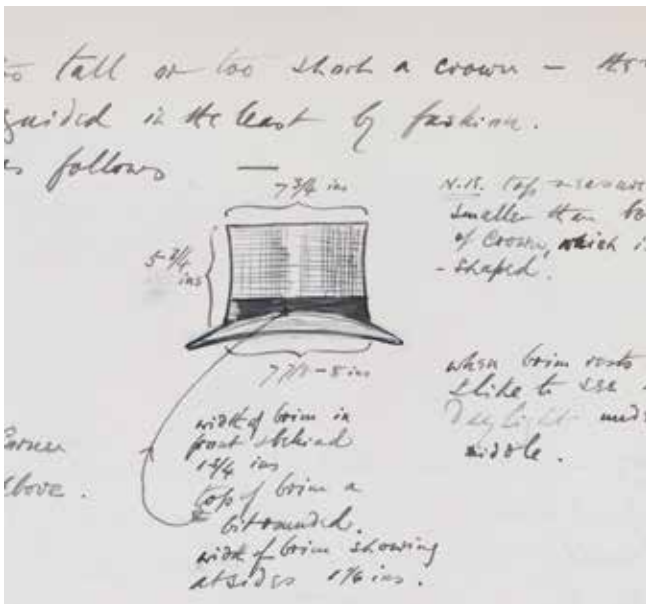 to tall or too short a crown –
guided in the least by fashion.
as follows —
7 3/4 ins
N.B. top measure
smaller than
of crown, which
- shaped.
5 3/4
ins
7 7/8 – 8 ins
when brim rests
I like to see
Daylight
middle.
width of brim in
front & behind
1 3/4 ins
top of brim a
bit rounded.
width of brim showing
at sides ins.
Corner
above.